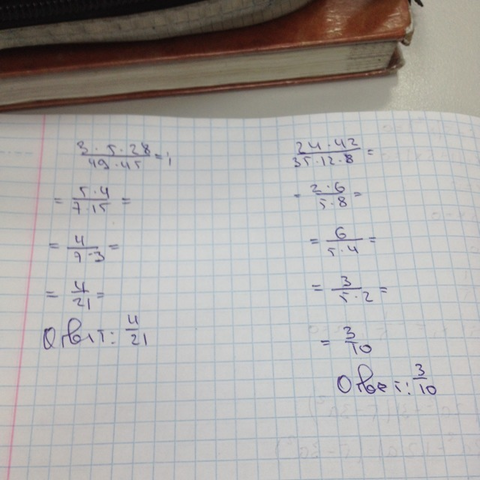 3·5·28/49·45=;
= 5·4/7·15 =
= 4/7·3 =
= 4/21 =
Ответ: 4/21
24·42/35·12·8 =
= 2·6/5·8 =
= 6/5·4 =
= 3/5·2 =
= 3/10
Ответ: 3/10